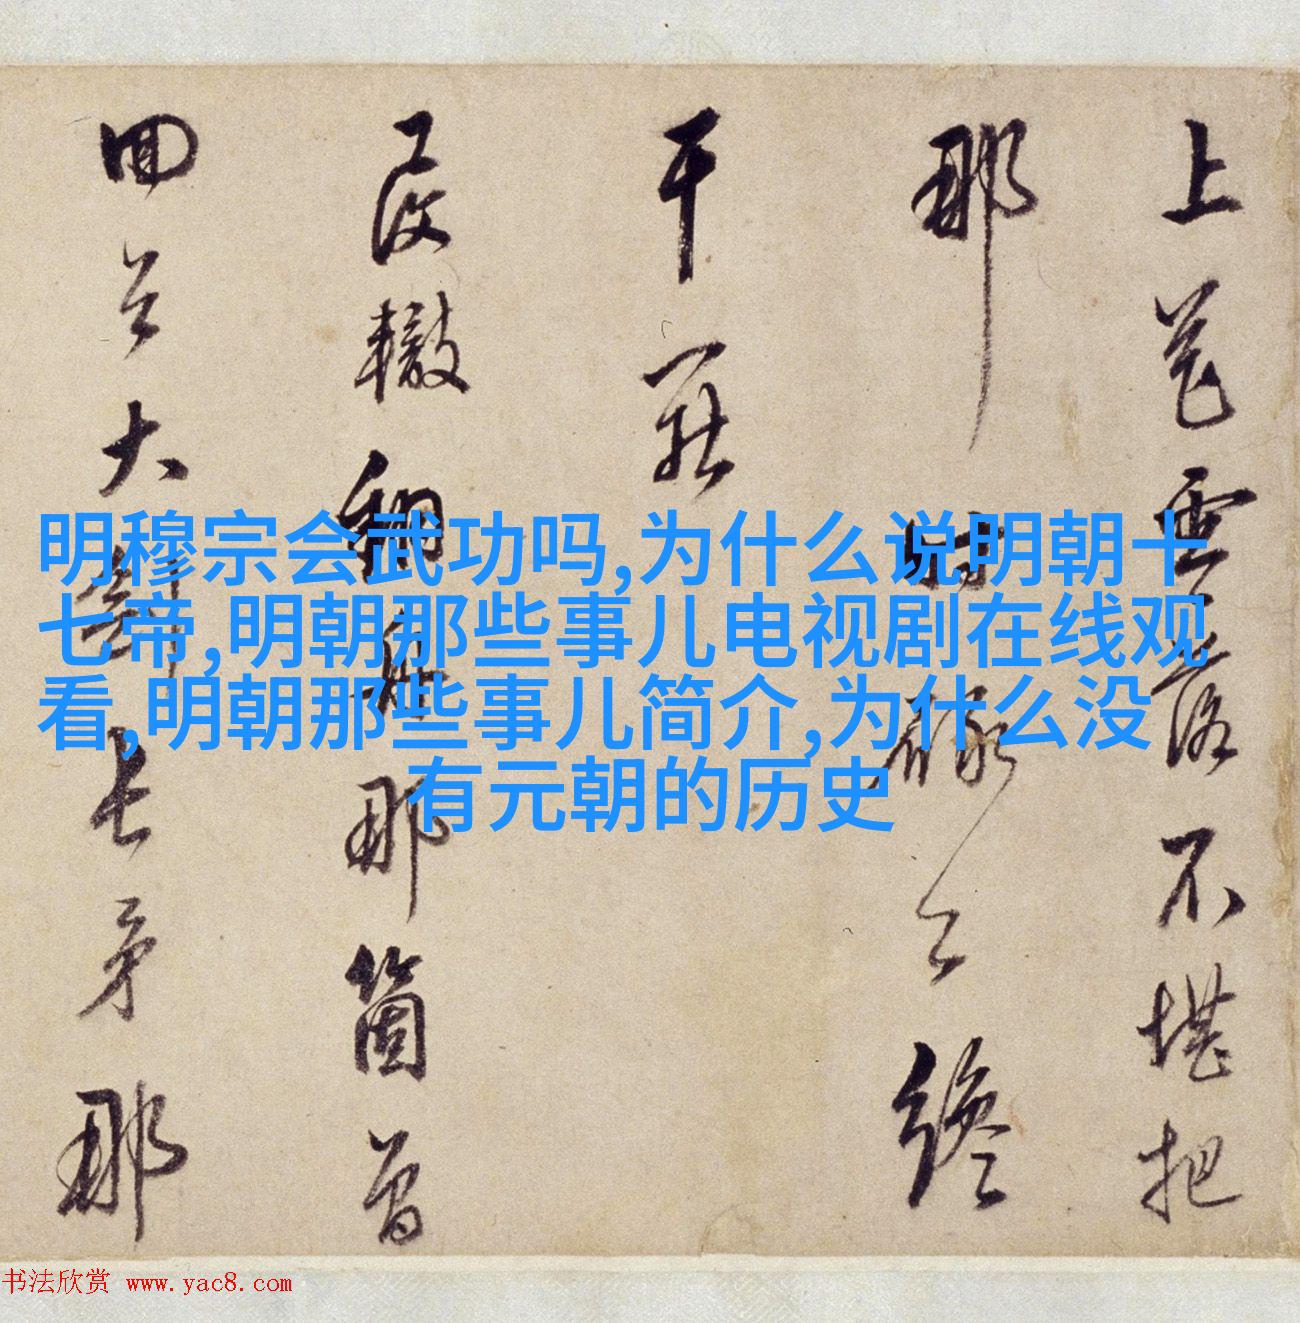 上雲落不堪把
那時碌終
干
轍翻身那箇
回大長矛那
明穆宗会武功吗,为什么说明朝十
七帝,明朝那些事儿电视剧在线观
看,明朝那些事儿简介,为什么没
有元朝的历史
书法欣赏 www.yac8.com